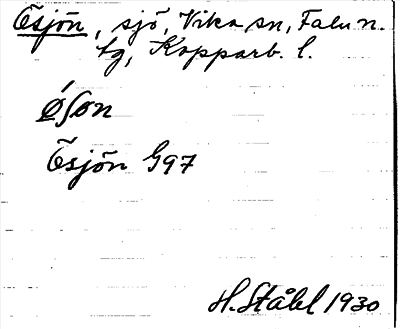 Ösjön, sjö, Vika sn, Falu n.
tg, Kopparb. l.
Ǿſøn
Ösjön G97
H. Ståhl 1930